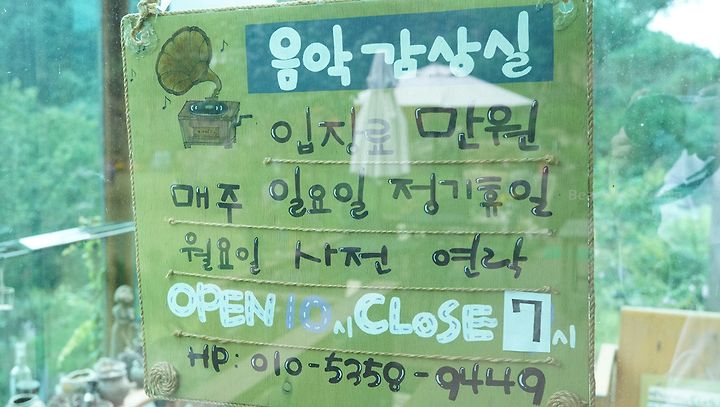 음악감상실
입장료 만원
매주 일요일 정기휴일
월요일 사전 연락
OPEN 10시 CLOSE 7시
HP: 010-5358-9449